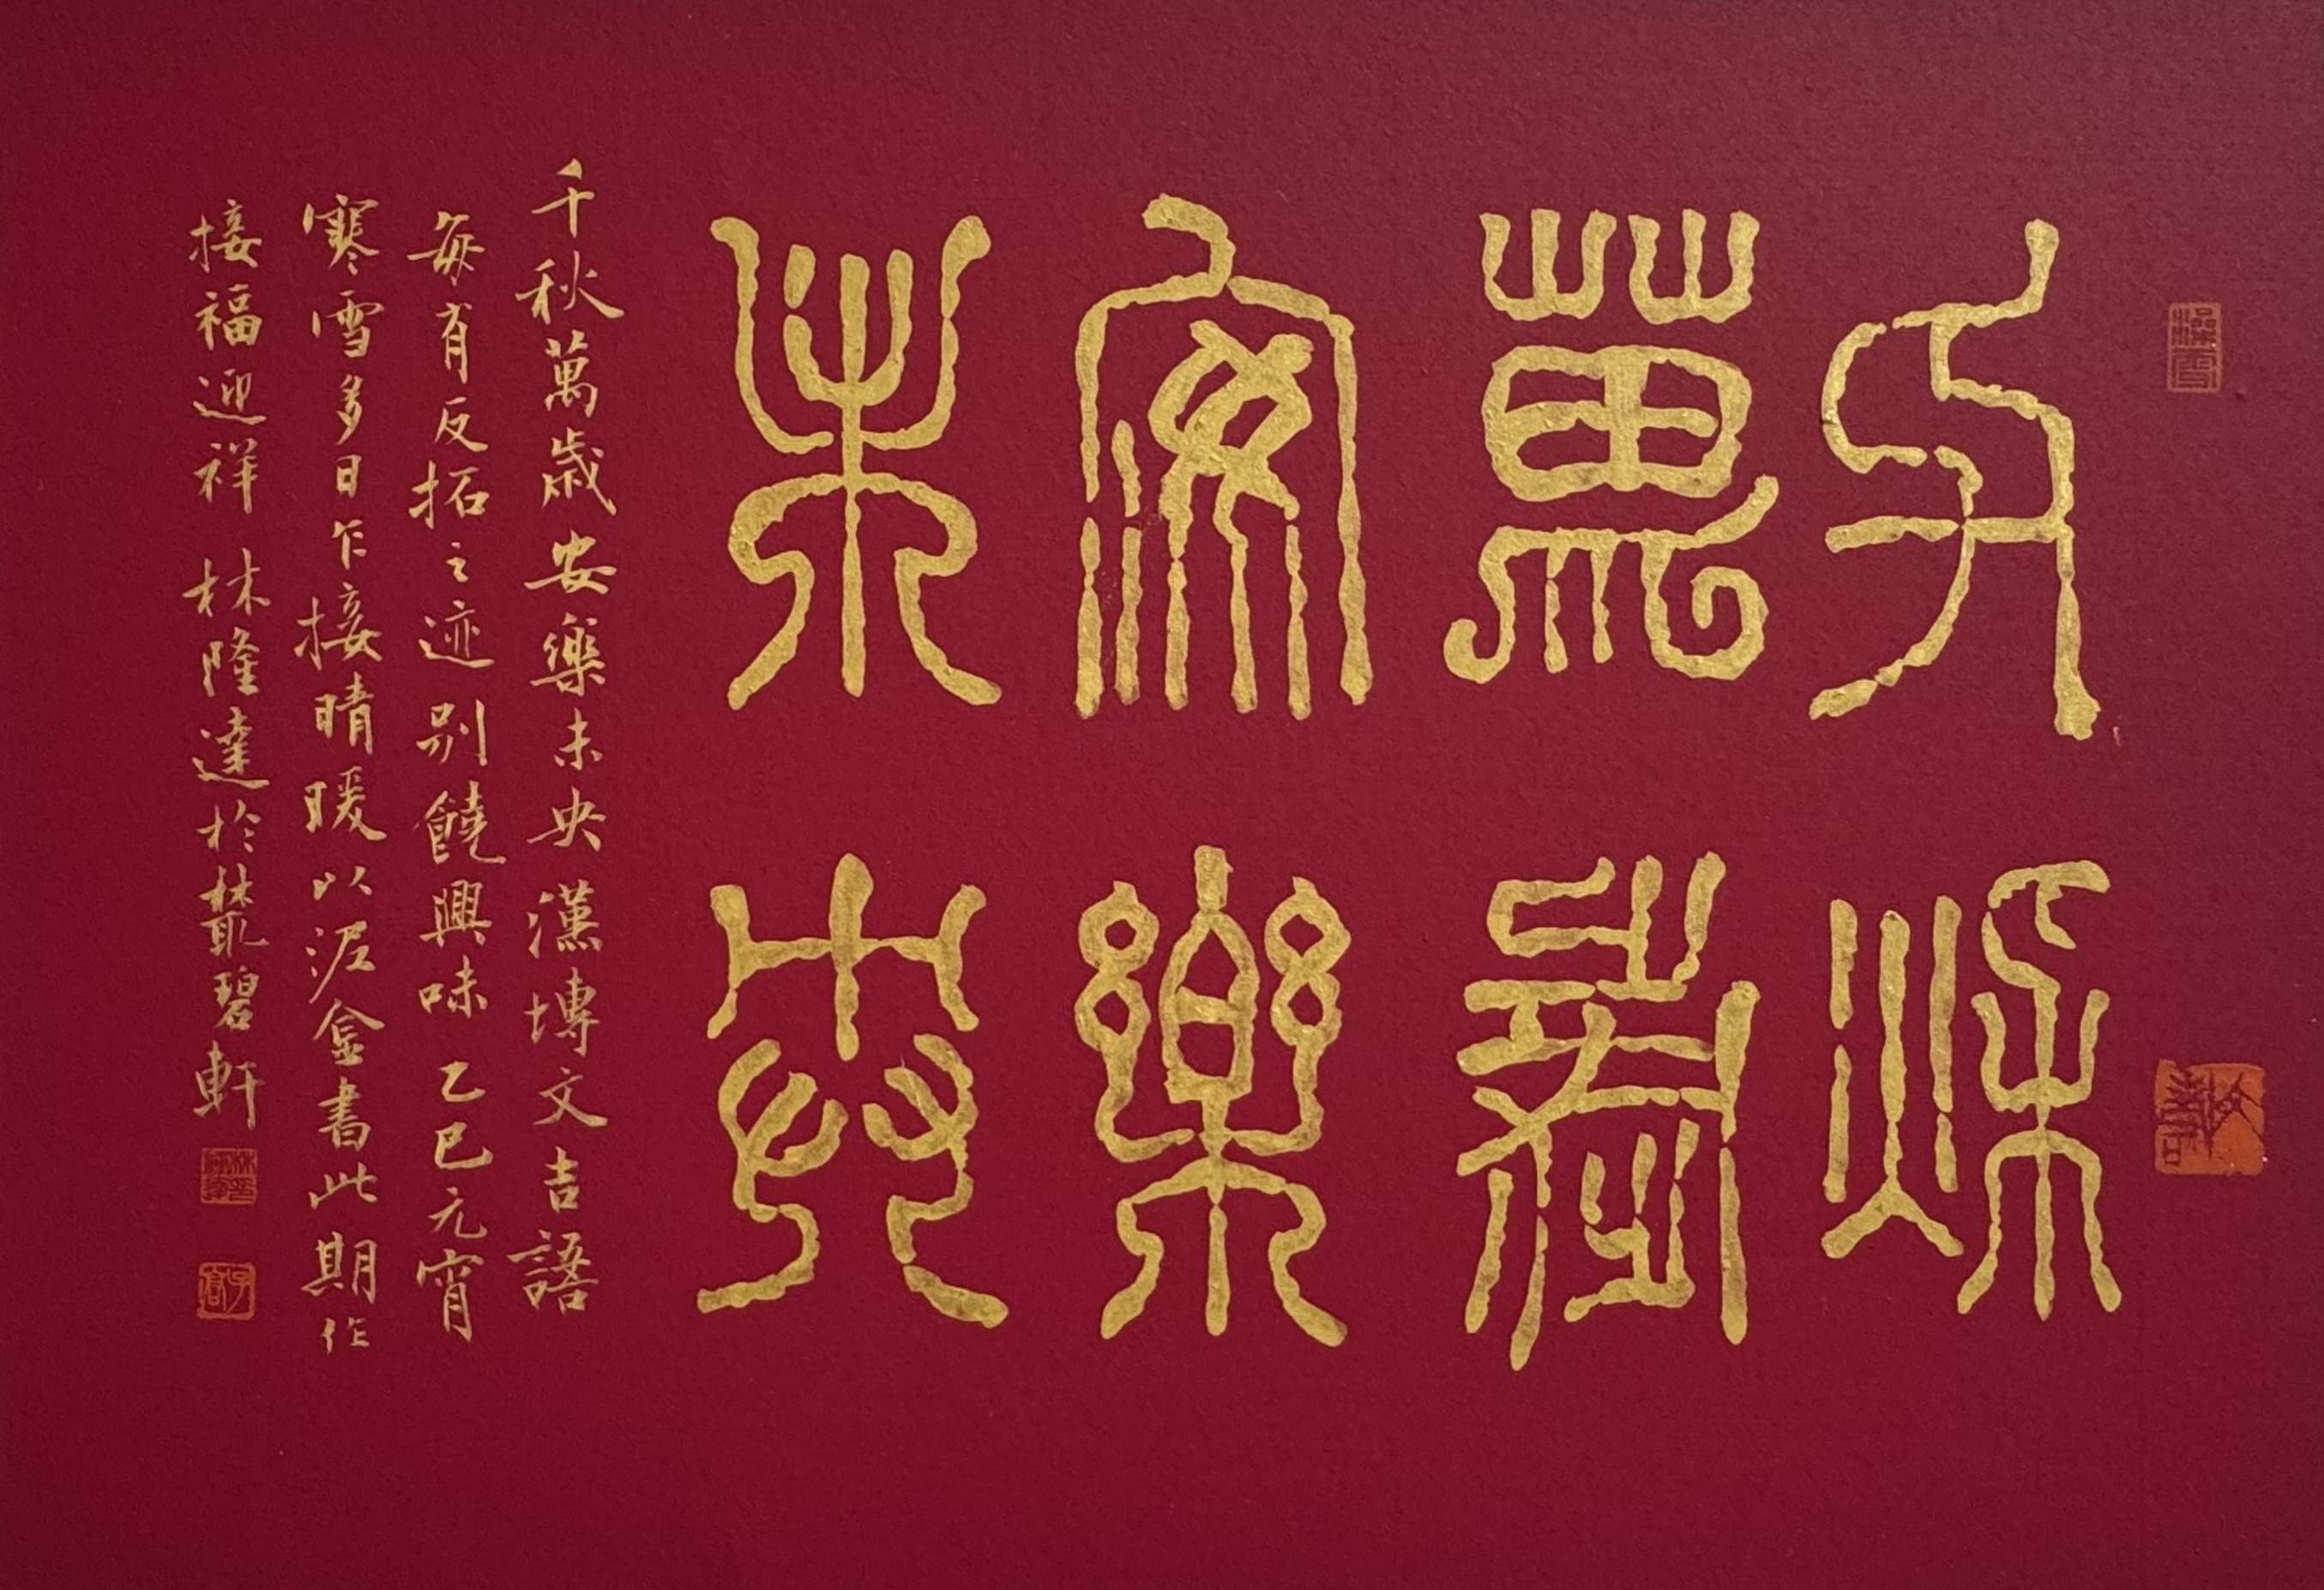 千秋
萬歲
安樂
未央
千秋萬歲安樂未央漢塼文吉語
每有反拓之迹別饒興味乙巳元宵
寒雪多日乍接晴暖以泥金書此期作
接福迎祥林隆達於叢碧軒